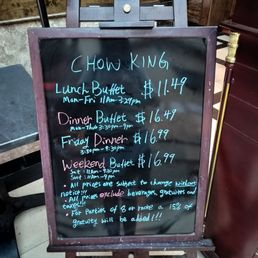 CHOW KING
Lunch Buffet $11.49
Mon-Fri 11am-3:29pm
Dinner Buffet $16.49
Mon-Thu 3:30pm-9pm
Friday Dinner $16.99
3:30pm-9:30pm
Weekend Buffet $16.99
Sat: 11am-9:30pm
Sun: 11am-9pm
• All prices are subject to change without
notice!!!
• All prices exclude beverages, gratuities and
taxes!!
• For Parties of 8 or more a 15% of
gratuity will be added!!!